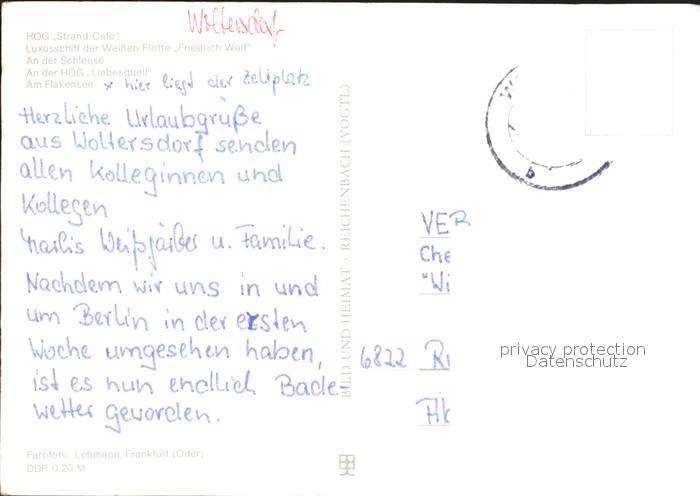 Woltersdorf
HOG „Strand-Café"
Luxusschiff der Weißen Flotte „Friedrich Wolf"
An der Schleuse
An der HOG „Liebesquell"
Am Flakensee x hier liegt der Zeltplatz
Herzliche Urlaubgrüße
aus Woltersdorf senden
allen Kolleginnen und
Kollegen
Marlis Weißgärber u. Familie.
Nachdem wir uns in und
um Berlin in der ersten
Woche umgesehen haben,
ist es nun endlich Bade-
wetter geworden.
Farbfoto: Lehmann, Frankfurt (Oder)
DDR 0.20 M
BILD UND HEIMAT · REICHENBACH (VOGTL)
VER
Che
"Wi
6822 Ru
privacy protection
Datenschutz